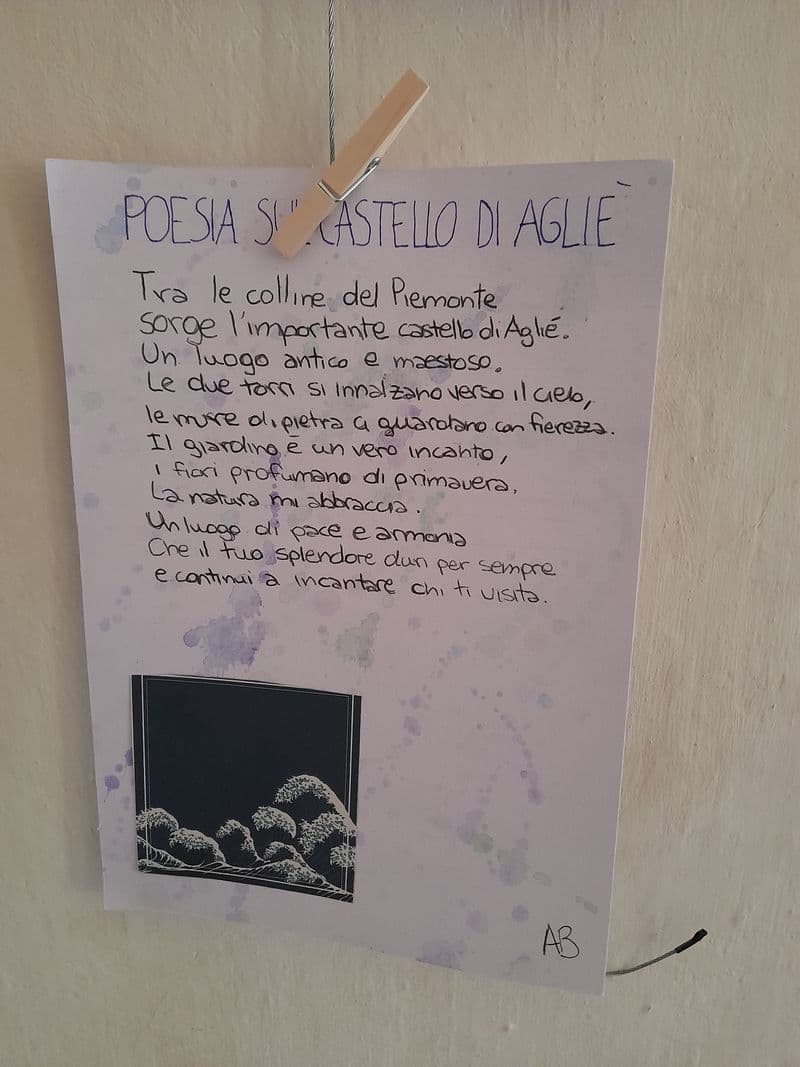 POESIA SUL CASTELLO DI AGLIÈ
Tra le colline del Piemonte
sorge l'importante castello di Aglié.
Un luogo antico e maestoso.
Le due torri si innalzano verso il cielo,
le mure di pietra ci guardano con fierezza.
Il giardino è un vero incanto,
i fiori profumano di primavera.
La natura mi abbraccia.
Un luogo di pace e armonia
Che il tuo splendore duri per sempre
e continui a incantare chi ti visita.
AB